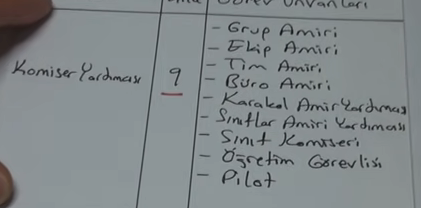 Görev Unvanları
- Grup Amiri
- Ekip Amiri
- Tim Amiri
Komiser Yardımcısı 9 - Büro Amiri
- Karakol Amir Yardımcısı
- Sınıflar Amiri Yardımcısı
- Sınıf Komiseri
- Öğretim Görevlisi
- Pilot